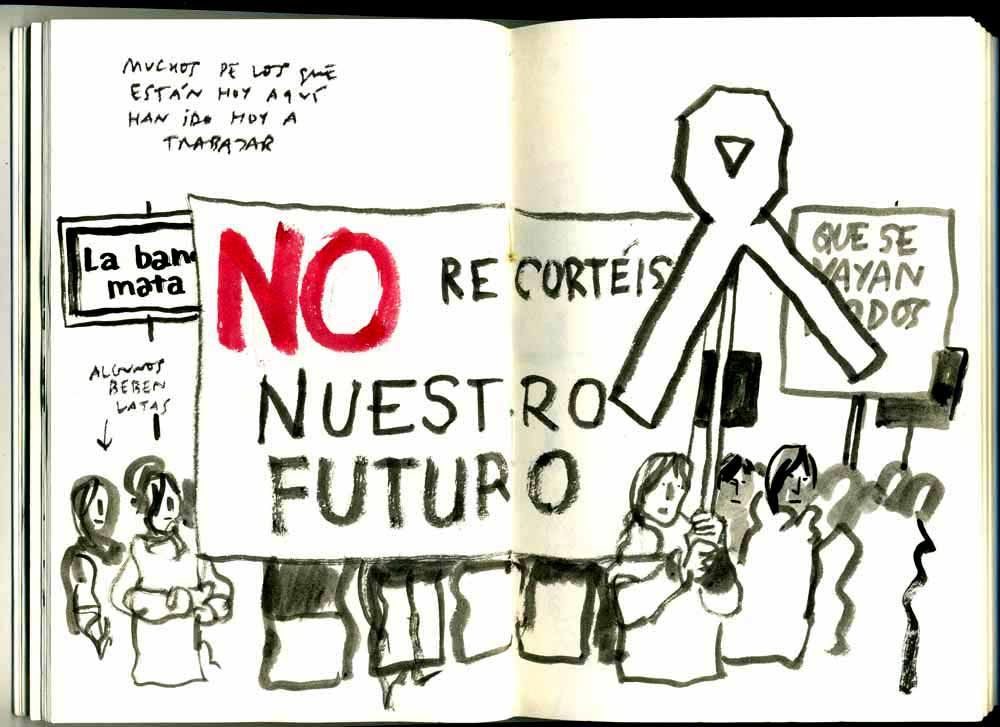 MUCHOS DE LOS QUE
ESTÁN HOY AQUÍ
HAN IDO HOY A
TRABAJAR
La ban
mata
NO RECORTÉIS
NUESTRO
FUTURO
QUE SE
VAYAN
TODOS
ALGUNOS
BEBEN
LATAS